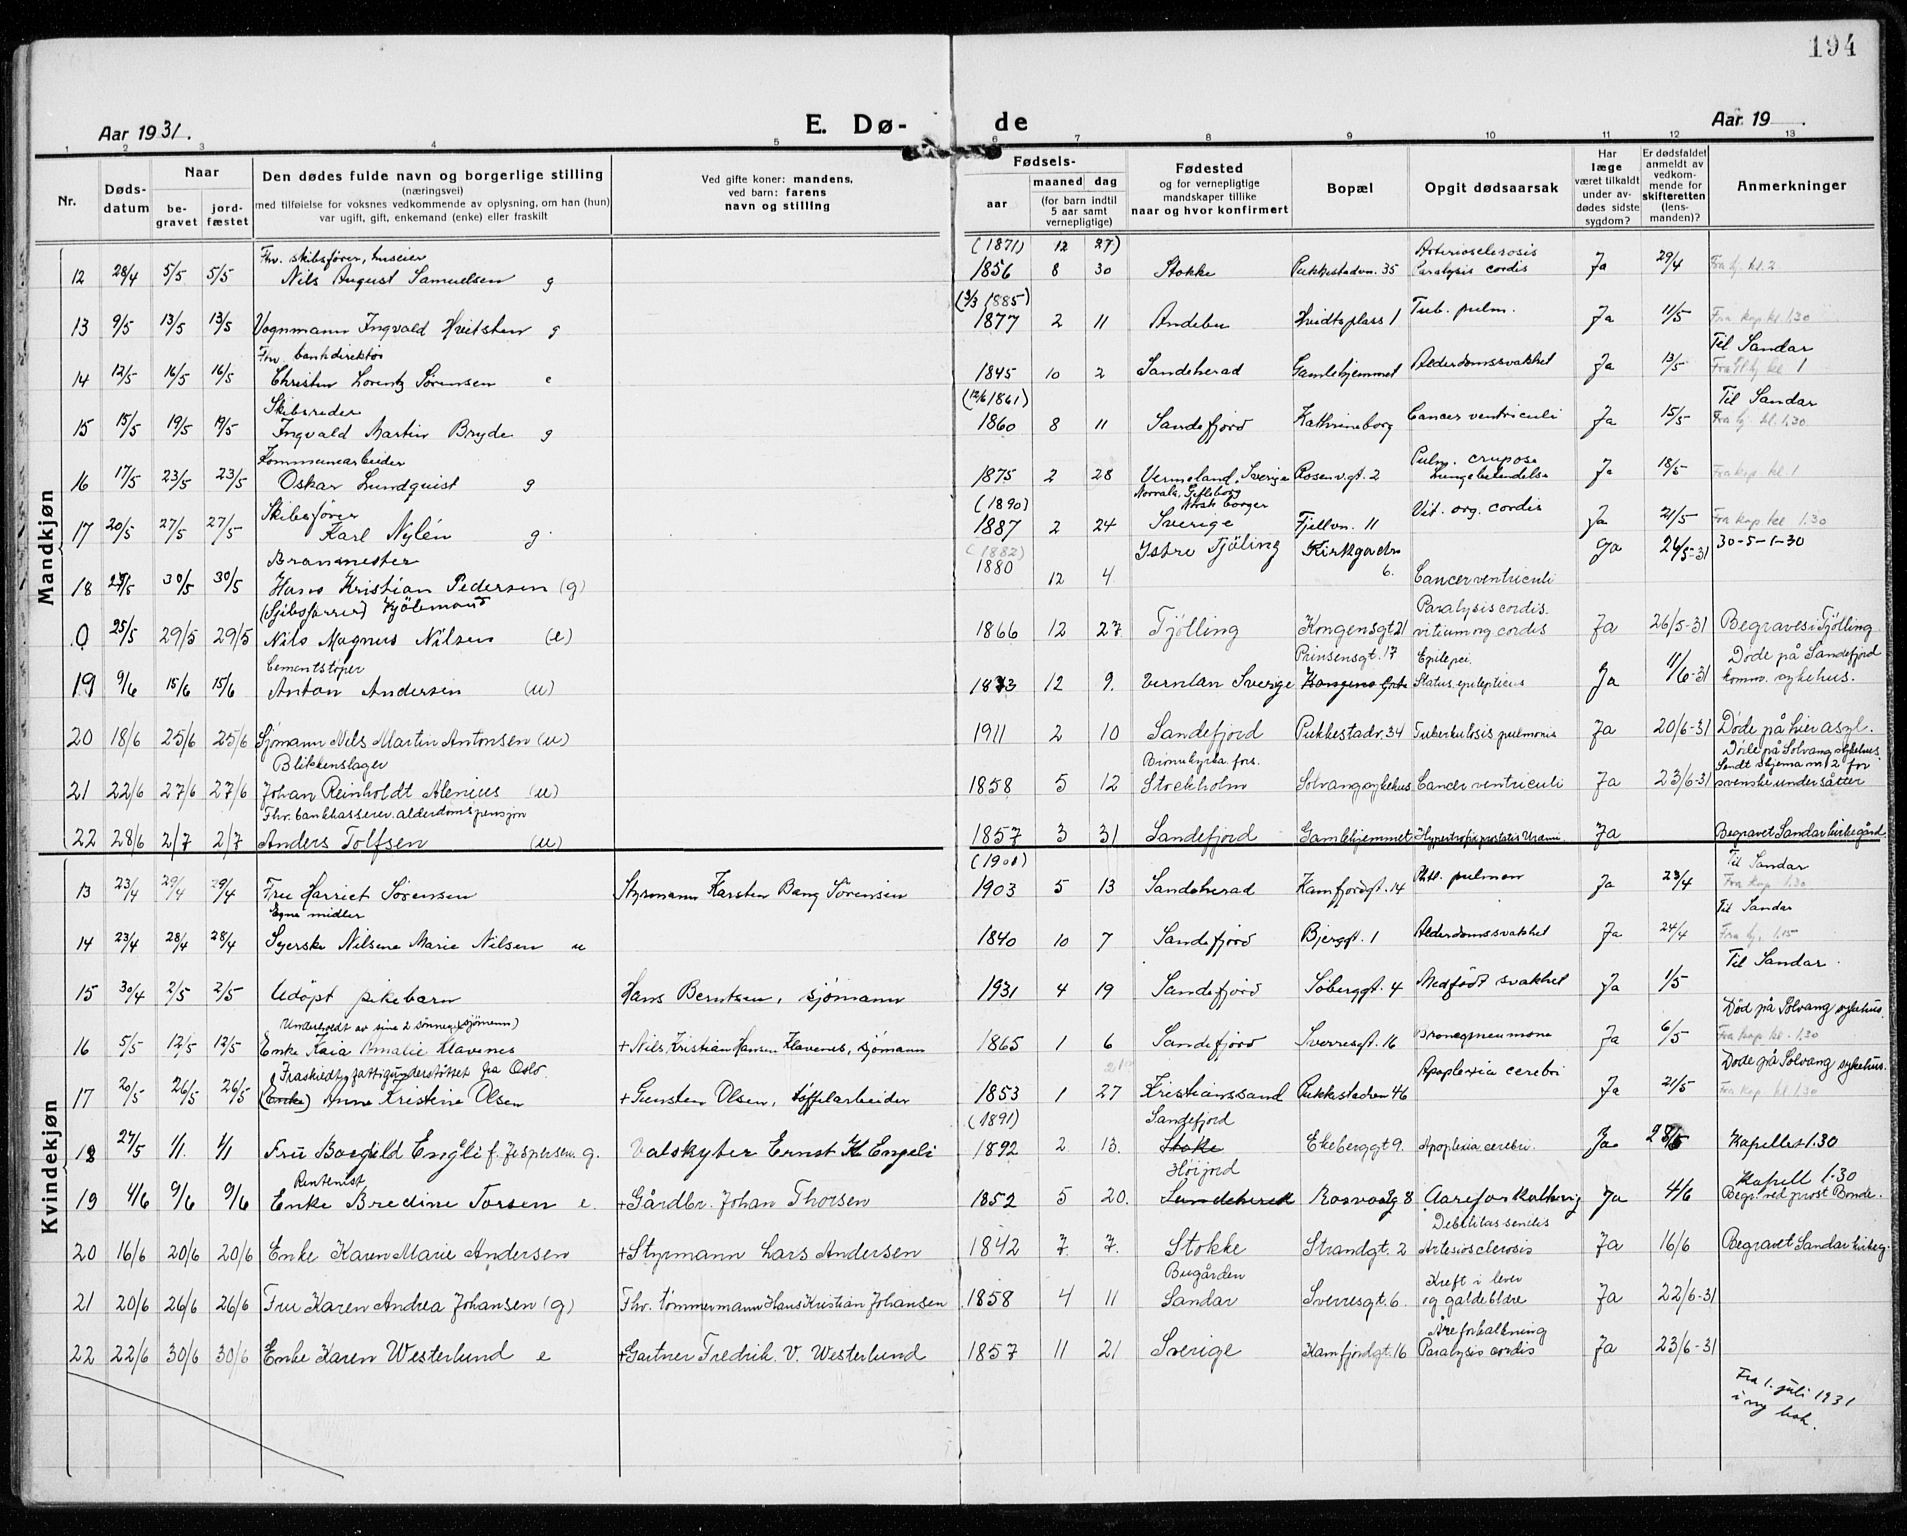 194
Aar 1931.
E. Dø-
de
Aar 19 .
1 2 3 4 5 6 7 8 9 10 11 12 13
Nr.
Døds-
datum
Naar
be-
gravet
jord-
fæstet
Den dødes fulde navn og borgerlige stilling
(næringsvei)
med tilføielse for voksnes vedkommende av oplysning, om han (hun)
var ugift, gift, enkemand (enke) eller fraskilt
Ved gifte koner: mandens,
ved barn: farens
navn og stilling
Fødsels-
aar
maaned dag
(for barn indtil
5 aar samt
vernepligtige)
Fødested
og for vernepligtige
mandskaper tillike
naar og hvor konfirmert
Bopæl
Opgit dødsaarsak
Har
læge
været tilkaldt
under av-
dødes sidste
sygdom?
Er dødsfaldet
anmeldt av
vedkom-
mende for
skifteretten
(lens-
manden)?
Anmerkninger
Mandkjøn
Fhv. skibsfører, huseier (1871) 12 27) Arteriosclerosis
12 28/4 5/5 5/5 Nils August Samuelsen g 1856 8 30 Stokke Pukkestadvn. 35 Paralysis cordis Ja 29/4 Fra hj. kl. 2
(3/3 1885)
13 9/5 13/5 13/5 Vognmann Ingvald Hvitsten g 1877 2 11 Andebu Hvidtsplass 1 Tub. pulm. Ja 11/5 Fra kap. kl. 1.30
Fhv. bankdirektør Til Sandar
14 12/5 16/5 16/5 Christen Lorentz Sørensen e 1845 10 2 Sandeherad Gamlehjemmet Alderdomssvakhet Ja 13/5 kl 1
Skibsreder (12/6 1861) Til Sandar
15 15/5 19/5 19/5 Ingvald Martin Bryde g 1860 8 11 Sandefjord Kathrineborg Cancer ventriculi Ja 15/5 Fra hj. kl. 1.30
Kommunearbeider Pulm. cruposa
16 17/5 23/5 23/5 Oskar Lundquist g 1875 2 28 Vermeland, Sverige Rosenv.gt. 2 Lungebetendelse Ja 18/5 Fra kap. kl. 1
Skibsfører (1890) Norrala, Gefleborg Norsk borger
17 20/5 27/5 27/5 Karl Nylén g. 1887 2 24 Sverige Fjellvn. 11 Vit. org. cordis Ja 21/5 Fra kap kl 1.30
Branmester (1882) Istre Tjöling Kirkgadn Ja 26/5-31 30-5-1-30
18 27/5 30/5 30/5 Hans Kristian Pedersen (g) 1880 12 4 6. Cancer ventriculi
(Sjibsförrer) Kjöbmand Paralysis cordis.
0 25/5 29/5 29/5 Nils Magnus Nilsen (e) 1866 12 27 Tjölling Kongensgt 21 vitium org cordis Ja 26/5-31 Begraves i Tjölling
Cementstöper Prinsensgt. 17 Epilepsi. Döde på Sandefjord
19 9/6 15/6 15/6 Anton Andersen (u) 1873 12 9. Vermlan Sverige Kongens Gate Status epilepticus Ja 11/6-31 komm. sykehus.
20 18/6 25/6 25/6 Sjömann Nils Martin Antonsen (u) 1911 2 10 Sandefjord Pukkestadv. 34 Tuberkulosis pulmonis Ja 20/6-31 Döde på Lier asyl.
Blikkenslager Döde på Solvang sykehus
21 22/6 27/6 27/6 Johan Reinholdt Alenius (u) 1858 5 12 Stockholm Solvang sykehus Cancer ventriculi Ja 23/6-31 Sendt skjema nr. 2 for svenske undersåtter
Fhv. bankkasserer. alderdomspensjon
22 28/6 2/7 2/7 Anders Tolfsen (u) 1857 3 31 Sandefjord Gamlehjemmet Hypertrofia prostatis Uræmi Ja Begravet Sandar kirkegård.
Kvindekjøn
(1901) Til Sandar
13 23/4 29/4 29/4 Fru Harriet Sørensen Styrmann Karsten Bang Sörensen 1903 5 13 Sandeherad Kamfjordgt. 14 Pht. pulmon Ja 23/4 Fra kap. 1.30
Egne midler Til Sandar
14 23/4 28/4 28/4 Syerske Nilsine Marie Nilsen u 1840 10 7 Sandefjord Bjerggt. 1 Alderdomssvakhet Ja 24/4 Fra hj. 1.15
Til Sandar.
15 30/4 2/5 2/5 Udöpt pikebarn Hans Berntsen, sjömann 1931 4 19 Sandefjord Söberggt. 4 Medfödt svakhet Ja 1/5
Underholdt av sine 2 sönner (sjömenn) Död på Solvang sykehus.
16 5/5 12/5 12/5 Enke Kaia Amalie Klavenes + Nils Kristian Hansen Klavenes, sjömann 1865 1 6 Sandefjord Sverresgt. 16 Broncopneumone Ja 6/5 Fra kap kl. 1.30
Fraskiedt, fattigunderstöttet fra Oslo. Apoplexia cerebri Döde på Solvang sykehus.
17 20/5 26/5 26/5 (Enke) Anne Kristine Olsen + Gunsten Olsen, töffelarbeider 1853 1 27 Kristianssand Pukkestadvn 46 Ja 21/5 Fra kap. kl. 1.30
(1891) Sandefjord
18 27/5 1/1 1/1 Fru Borghild Engeli f. Jespersen. g. Valskyter Ernst K Engeli 1892 2 13. Stoke Ekeberggt 9. Apoplexia cerebri. Ja 28/5 Kapellet 1.30
Rentenist Höijord Kapell 1.30
19 4/6 9/6 9/6 Enke Bredine Torsen e. + Gårdbr. Johan Thorsen 1852 5 20. Sandeherred Rosvoldg 8 Aareforkalkning Ja 4/6 Begr. ved prost Bonde.
Debilitas senilis
20 16/6 20/6 20/6 Enke Karen Marie Andersen + Styrmann Lars Andersen 1842 7. 7. Stokke Strandgt. 2 Arteriosclerosis Ja 16/6 Begravet Sandar kirkeg.
Bugården Kreft i lever
21 20/6 26/6 26/6 Fru Karen Andrea Johansen (g) Fhv. tömmermann Hans Kristian Johansen 1858 4 11 Sandar Sverresgt. 6. og galdeblære Ja 22/6-31
Åreforkalkning
22 22/6 30/6 30/6 Enke Karen Westerlund e + Gartner Fredrik. V. Westerlund 1857 11 21 Sverige Kamfjordgt. 16 Paralysis cordis Ja 23/6-31
Fra 1. juli 1931
i ny bok.